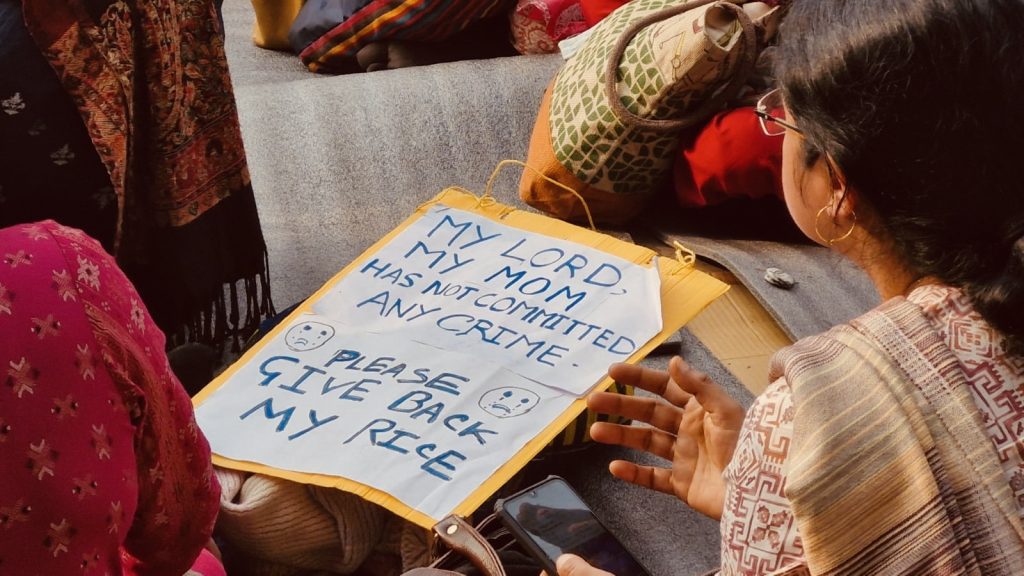 MY LORD,
MY MOM
HAS NOT COMMITTED
ANY CRIME.
PLEASE
GIVE BACK
MY RICE